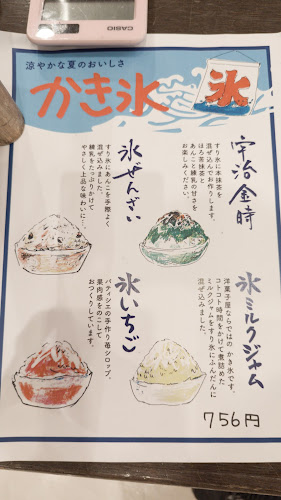 CASIO
涼やかな夏のおいしさ
かき氷
氷
宇治金時
すり氷に本抹茶を
混ぜ込んでお作りします。
ほろ苦抹茶と
あんこと練乳の甘さを
お楽しみください
氷ぜんざい
すり氷にあんこを手際よく
混ぜ込みました。
練乳をたっぷりかけて
やさしく上品な味わいに…
氷ミルクジャム
洋菓子屋ならではの かき氷です。
コトコト時間をかけて煮詰めた
ミルクジャムをすり氷にふんだんに
混ぜ込みました。
氷いちご
パティシエの手作り苺シロップ。
果肉感をのこして
おつくりしています。
756円